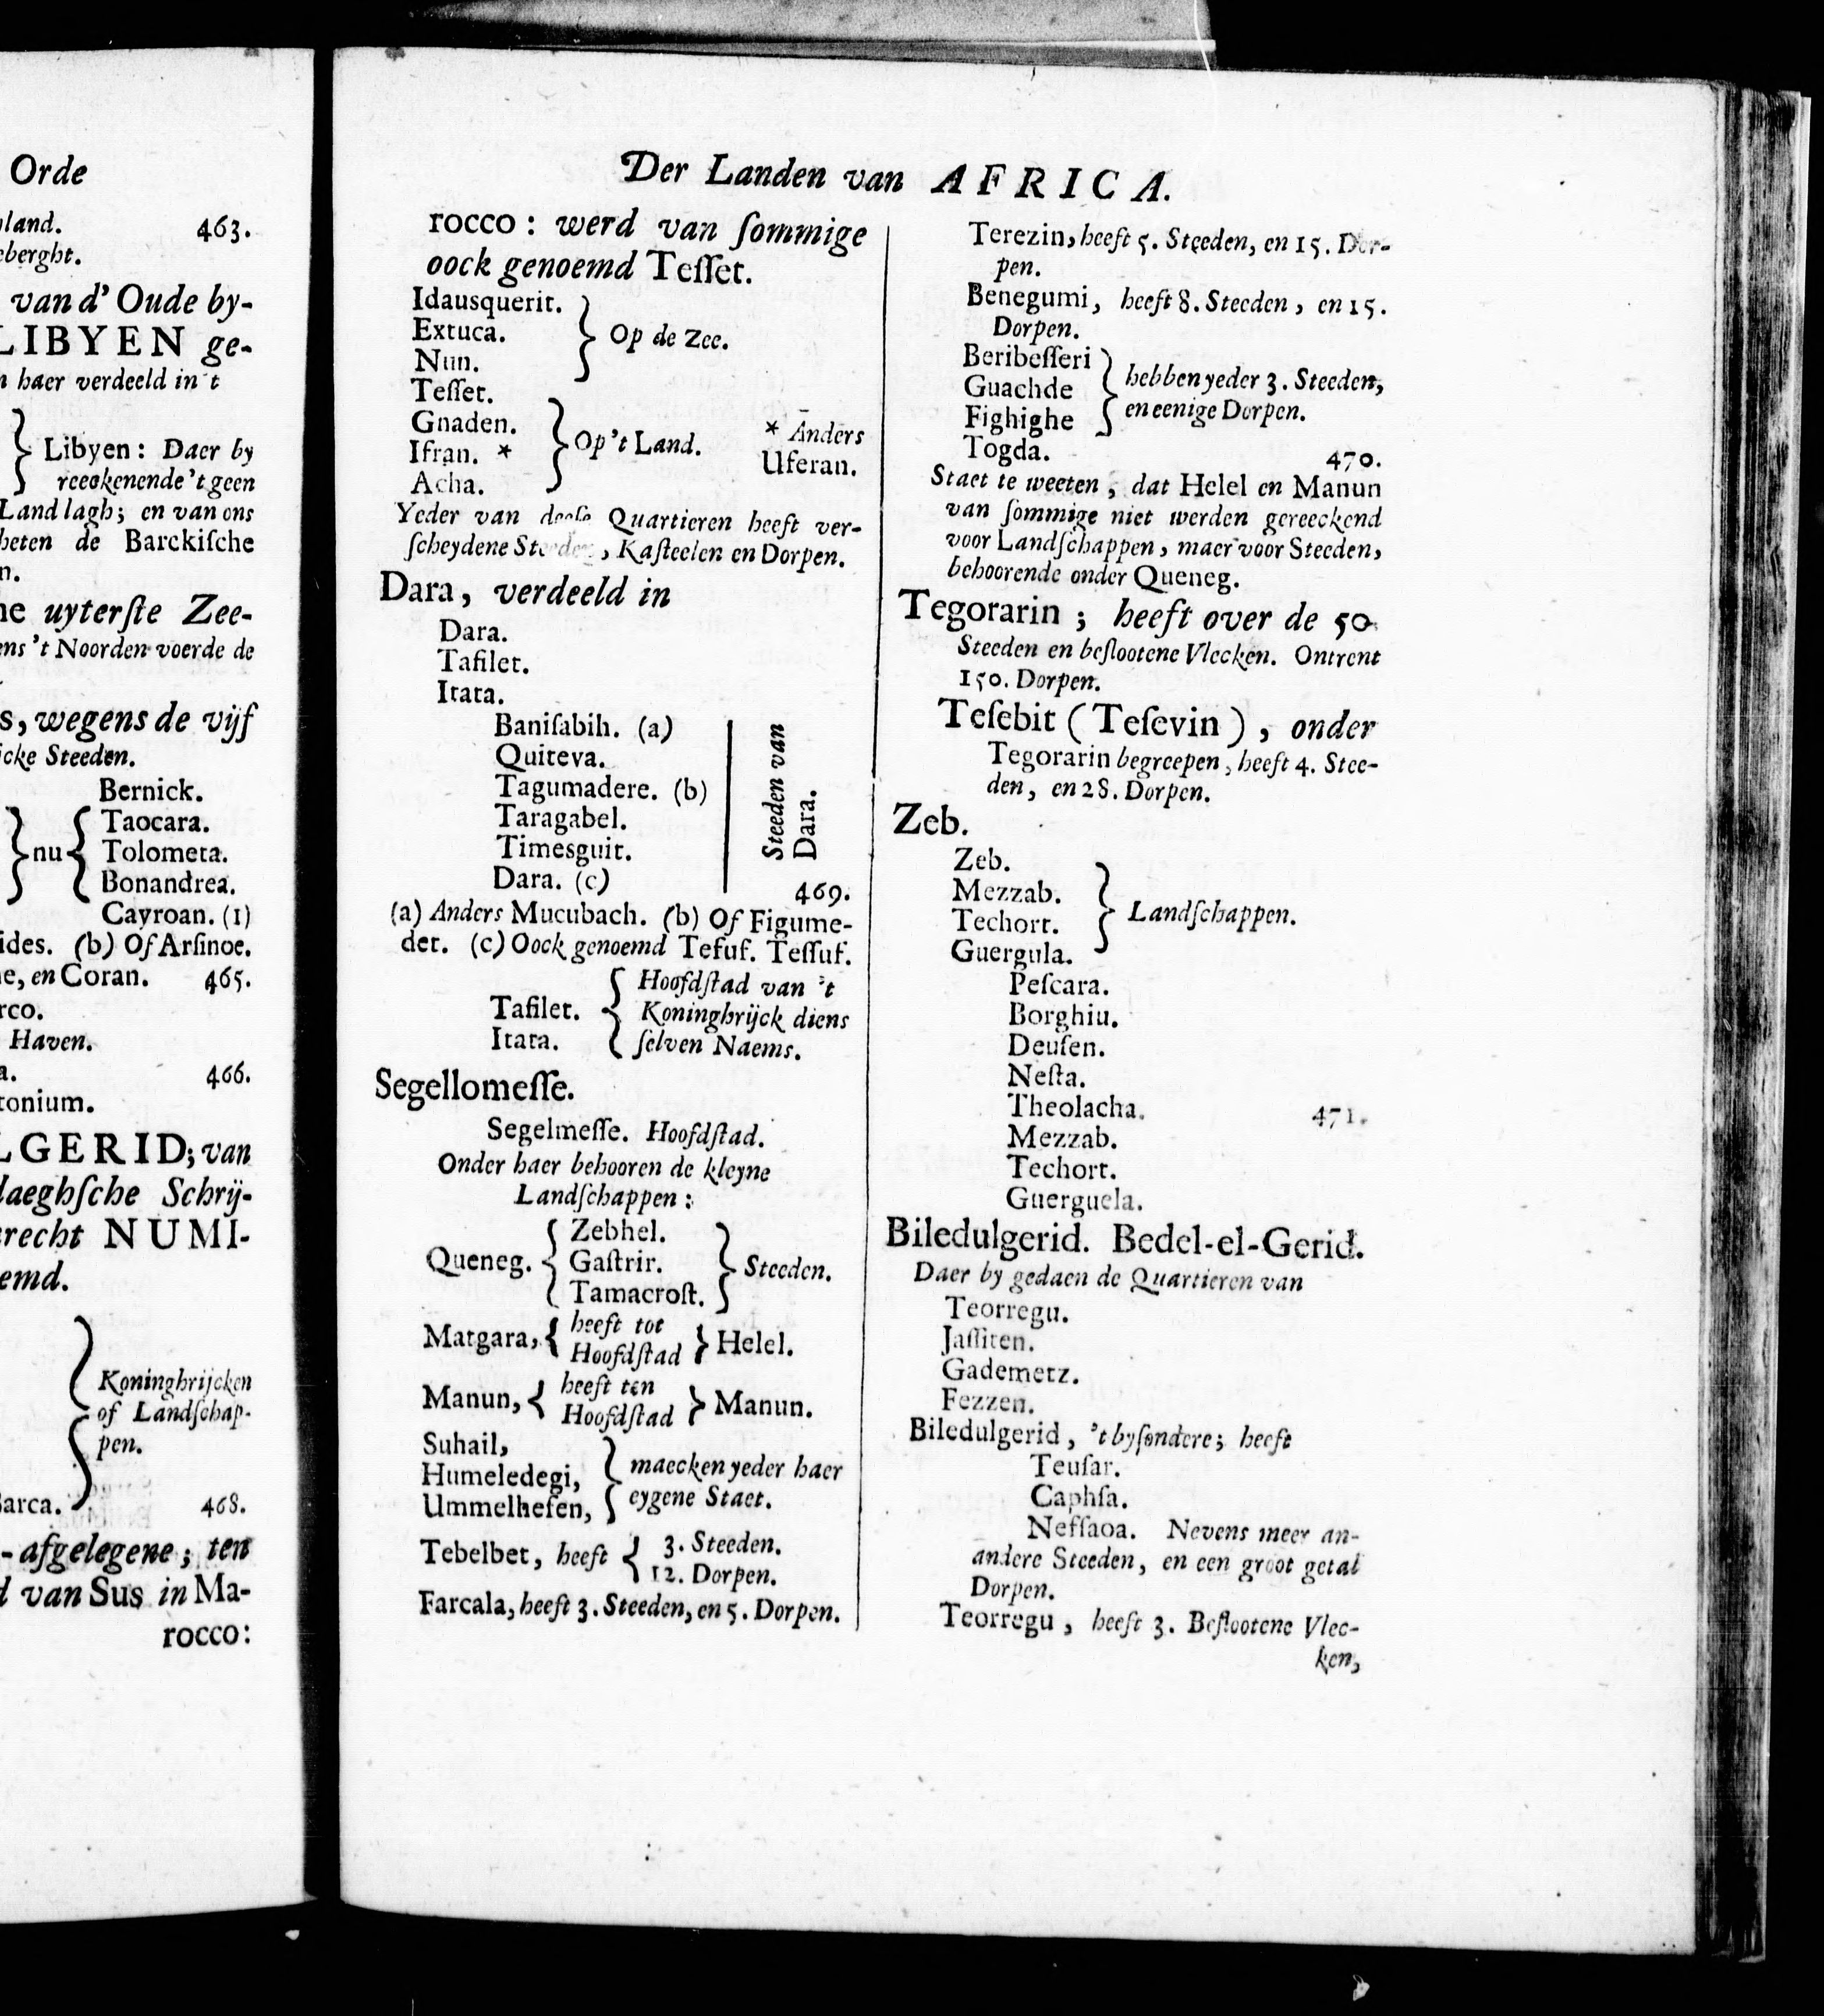 Orde
land. 463.
berght.
van d' Oude by-
LIBYEN ge-
haer verdeeld in 't
Libyen: Daer by
reeckenende 't geen
Land lagh; en van ons
heten de Barckiſche
n.
ne uyterſte Zee-
ens 't Noorden voerde de
s, wegens de vijf
icke Steeden.
Bernick.
Taocara.
nu Tolometa.
Bonandrea.
Cayroan. (1)
ides. (b) Of Arſinoe.
e, en Coran. 465.
rco.
Haven.
a. 466.
tonium.
LGERID; van
daeghſche Schrij-
recht NUMI-
emd.
Koninghrijcken
of Landſchap-
pen.
Barca. 468.
-afgelegene; ten
d van Sus in Ma-
rocco:
Der Landen van AFRICA.
rocco: werd van ſommige
oock genoemd Teſſet.
Idausquerit.
Extuca. Op de Zee.
Nun.
Teſſet.
Gnaden.
Ifran. * Op 't Land. * Anders
Uferan.
Acha.
Yeder van deeſe Quartieren heeft ver-
ſcheydene Steeden, Kaſteelen en Dorpen.
Dara, verdeeld in
Dara.
Tafilet.
Itata.
Baniſabih. (a)
Quiteva.
Tagumadere. (b)
Taragabel.
Timesguit.
Dara. (c)
Steeden van
Dara.
469.
(a) Anders Mucubach. (b) Of Figume-
det. (c) Oock genoemd Tefuf. Teſſuf.
Hoofdſtad van 't
Tafilet. Koninghrijck diens
Itata. ſelven Naems.
Segellomeſſe.
Segelmeſſe. Hoofdſtad.
Onder haer behooren de kleyne
Landſchappen:
Zebhel.
Queneg. Gaſtrir. Steeden.
Tamacroſt.
Matgara, heeft tot
Hoofdſtad Helel.
Manun, heeft ten
Hoofdſtad Manun.
Suhail,
Humeledegi, maecken yeder haer
Ummelhefen, eygene Staet.
Tebelbet, heeft 3. Steeden.
12. Dorpen.
Farcala, heeft 3. Steeden, en 5. Dorpen.
Terezin, heeft 5. Steeden, en 15. Dor-
pen.
Benegumi, heeft 8. Steeden, en 15.
Dorpen.
Beribeſſeri
Guachde hebben yeder 3. Steeden,
Fighighe en eenige Dorpen.
Togda. 470.
Staet te weeten, dat Helel en Manun
van ſommige niet werden gereeckend
voor Landſchappen, maer voor Steeden,
behoorende onder Queneg.
Tegorarin; heeft over de 50
Steeden en beſlootene Vlecken. Ontrent
150. Dorpen.
Teſebit (Teſevin), onder
Tegorarin begreepen, heeft 4. Stee-
den, en 28. Dorpen.
Zeb.
Zeb.
Mezzab.
Techort. Landſchappen.
Guergula.
Peſcara.
Borghiu.
Deuſen.
Neſta.
Theolacha. 471.
Mezzab.
Techort.
Guerguela.
Biledulgerid. Bedel-el-Gerid.
Daer by gedaen de Quartieren van
Teorregu.
Jaſliten.
Gademetz.
Fezzen.
Biledulgerid, 't byſondere; heeft
Teuſar.
Caphſa.
Nefſaoa. Nevens meer an-
andere Steeden, en een groot getal
Dorpen.
Teorregu, heeft 3. Beſlootene Vlec-
ken,